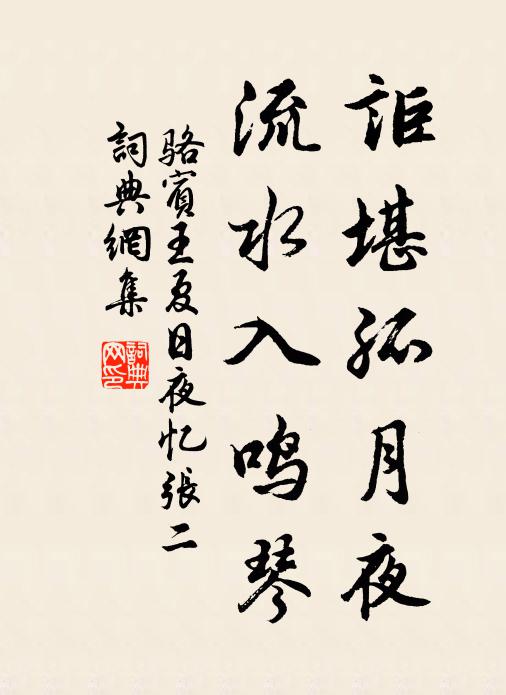 詎堪孤月夜
流水入鸣琴
骆賓王夏日夜忆張二
詞典網集
詞典网印